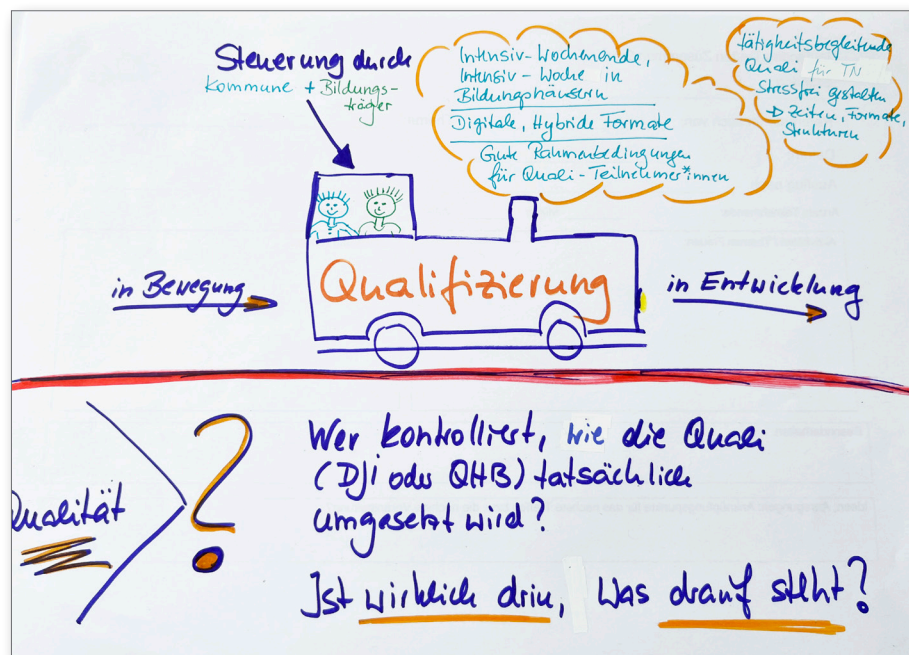 Steuerung durch
Kommune + Bildungs-
träger
Intensiv-Wochenende,
Intensiv-Woche in
Bildungshäusern
Digitale, Hybride Formate
Gute Rahmenbedingungen
für Quali-Teilnehmer*innen
tätigkeitsbegleitende
Quali für TN
Stressfrei gestalten
→ Zeiten, Formate,
Strukturen
in Bewegung
Qualifizierung
in Entwicklung
Qualität
?
Wer kontrolliert, wie die Quali
(DJi oder QHB) tatsächlich
umgesetzt wird?
Ist wirklich drin, was drauf steht?